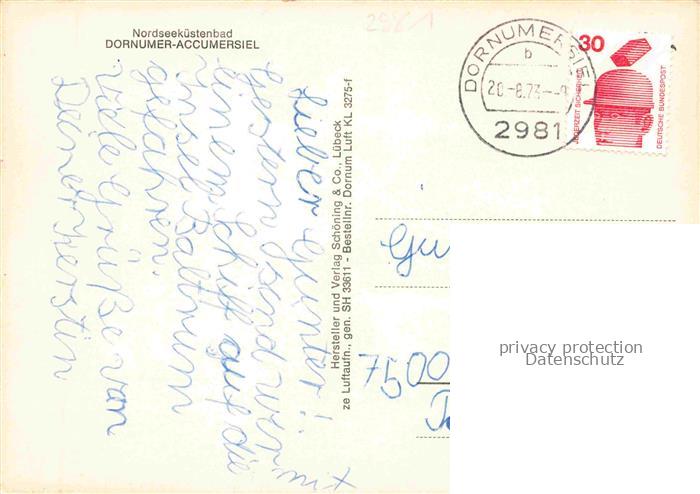 2981
Nordseeküstenbad
DORNUMER-ACCUMERSIEL
Lieber Gunter!
Gestern sind wir mit
einem Schiff auf die
Insel Baltrum
gefahren.
Viele Grüße von
Deiner Kerstin
Hersteller und Verlag Schöning & Co., Lübeck
ze Luftaufn., gen. SH 33611 - Bestellnr. Dornum Luft KL 3275-f
DORNUMERSIEL
b
20-8.73
2981
30
JEDERZEIT SICHERHEIT
DEUTSCHE BUNDESPOST
Gu
7500
privacy protection
Datenschutz